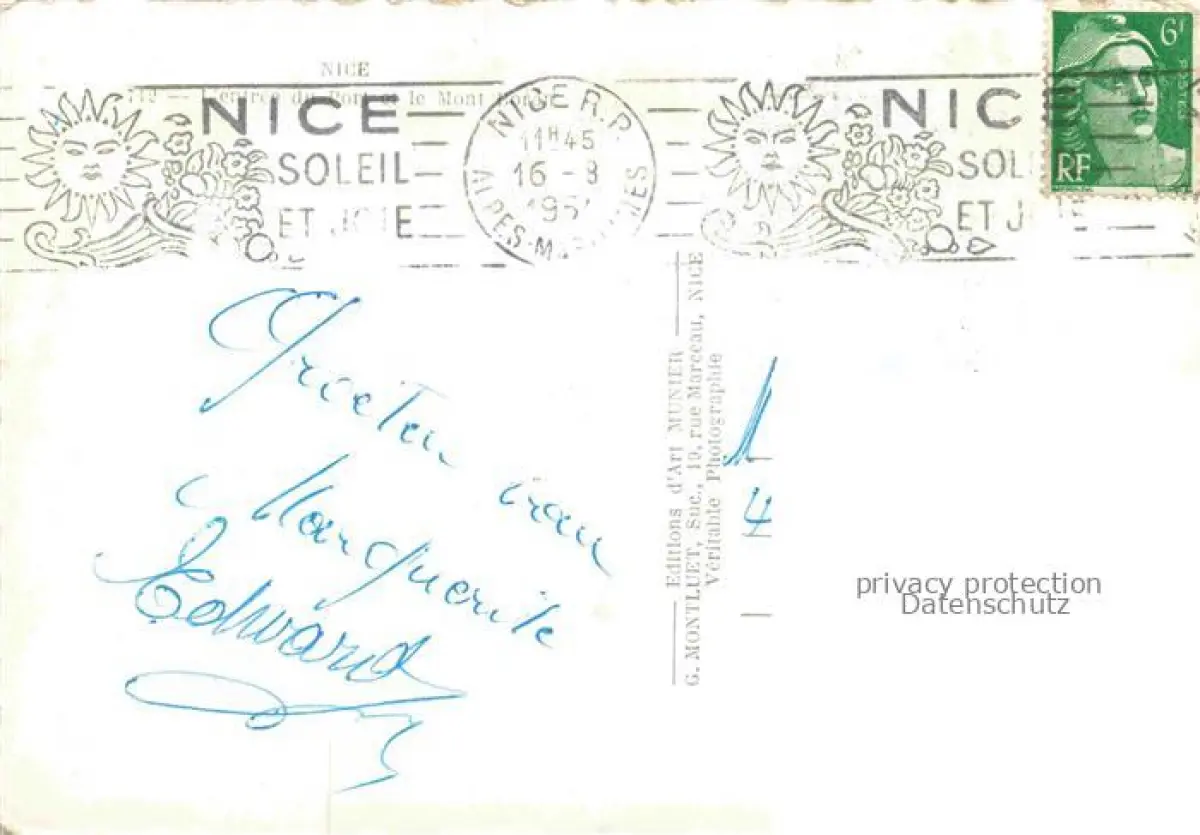 NICE
L'entrée du Port et le Mont
NICE
SOLEIL
ET JOIE
NICE R.P.
11H45
16 - 8
195
ALPES-MARITIMES
NICE
SOL
ET JOIE
6F
RF
Groeten van
Marguerite
Edward
Editions d'Art MUNIER
G. MONTLUET, Suc., 19, rue Marceau, NICE
Véritable Photographie
4
privacy protection
Datenschutz